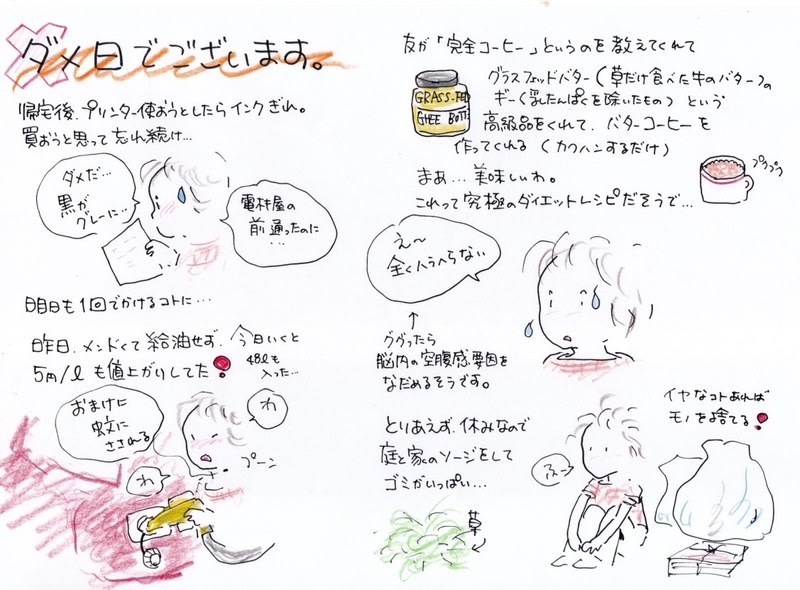 ダメ日でございます。
帰宅後、プリンター使おうとしたらインクぎれ。
買おうと思って忘れ続け...
ダメだ...
黒が
グレーに...
電材屋の
前通ったのに
...
明日も1回でかけるコトに...
昨日、メンドくて給油せず、今日いくと
5円/ℓも値上がりしてた!
48ℓも
入った...
おまけに
蚊に
さされる
わ
プーン
わ
友が「完全コーヒー」というのを教えてくれて
グラスフェッドバター(草だけ食べた牛のバター)の
ギー(乳たんぱくを除いたもの)という
高級品をくれて、バターコーヒーを
作ってくれる(カクハンするだけ)
GRASS-FED
GHEE BUTT
まぁ...美味しいわ。
これって究極のダイエットレシピだそうで...
プクプク
え〜
全くハラへらない
↑
ググったら
脳内の空腹感要因を
なだめるそうです。
とりあえず、休みなので
庭と家のソージをして
ゴミがいっぱい...
草
ふー
イヤなコトあれば
モノを捨てる!